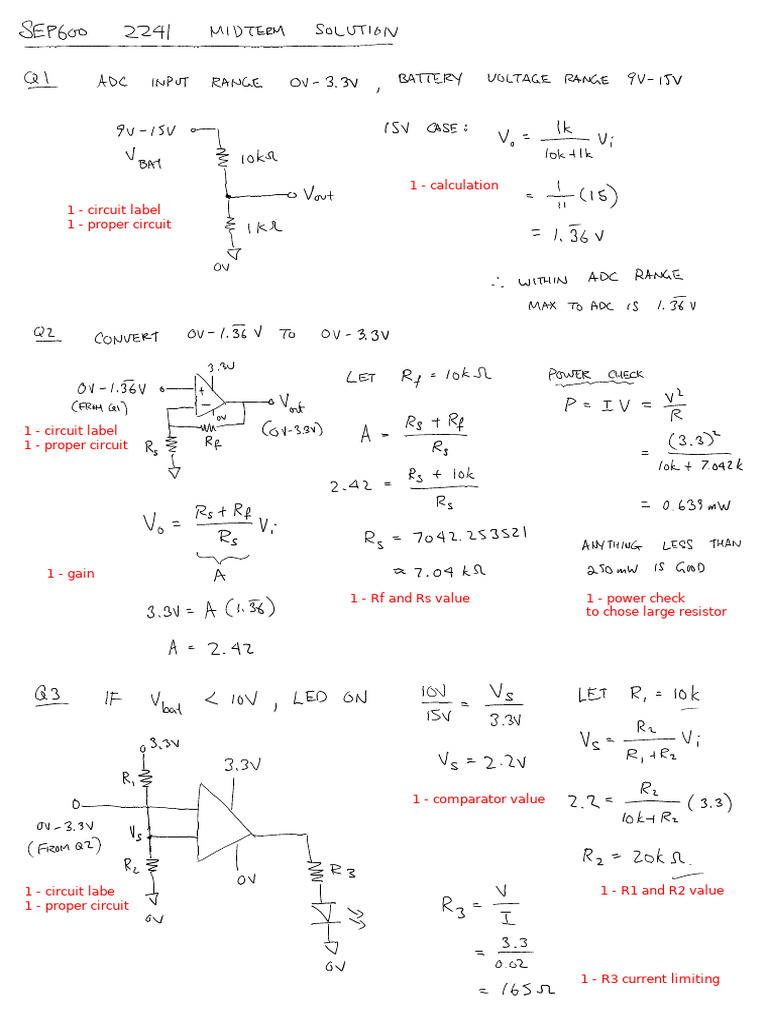 SEP600 2241 MIDTERM SOLUTION
Q1 ADC INPUT RANGE 0V-3.3V, BATTERY VOLTAGE RANGE 9V-15V
9V-15V
V_BAT
10kΩ
Vout
1kΩ
0V
1 - circuit label
1 - proper circuit
15V CASE: V_o = 1k / (10k+1k) V_i
1 - calculation
= 1/11 (15)
= 1.3̅6̅ V
∴ WITHIN ADC RANGE
MAX TO ADC IS 1.3̅6̅ V
Q2 CONVERT 0V-1.3̅6̅ V TO 0V-3.3V
3.3V
0V-1.3̅6̅V
(FROM Q1)
+
-
0V
Vout
(0V-3.3V)
Rs
Rf
1 - circuit label
1 - proper circuit
V_o = (Rs+Rf) / Rs V_i
A
1 - gain
3.3V = A (1.3̅6̅)
A = 2.42
LET Rf = 10kΩ
A = (Rs + Rf) / Rs
2.42 = (Rs + 10k) / Rs
Rs = 7042.253521
≈ 7.04 kΩ
1 - Rf and Rs value
POWER CHECK
P = IV = V² / R
= (3.3)² / (10k + 7.042k)
= 0.639 mW
ANYTHING LESS THAN
250mW IS GOOD
1 - power check
to chose large resistor
Q3 IF Vbat < 10V, LED ON
3.3V
R1
3.3V
0V-3.3V
(FROM Q2)
Vs
R2
0V
0V
R3
0V
1 - circuit labe
1 - proper circuit
10V / 15V = Vs / 3.3V
Vs = 2.2V
1 - comparator value
LET R1 = 10k
Vs = R2 / (R1+R2) Vi
2.2 = R2 / (10k+R2) (3.3)
R2 = 20kΩ.
1 - R1 and R2 value
R3 = V / I
= 3.3 / 0.02
= 165Ω
1 - R3 current limiting